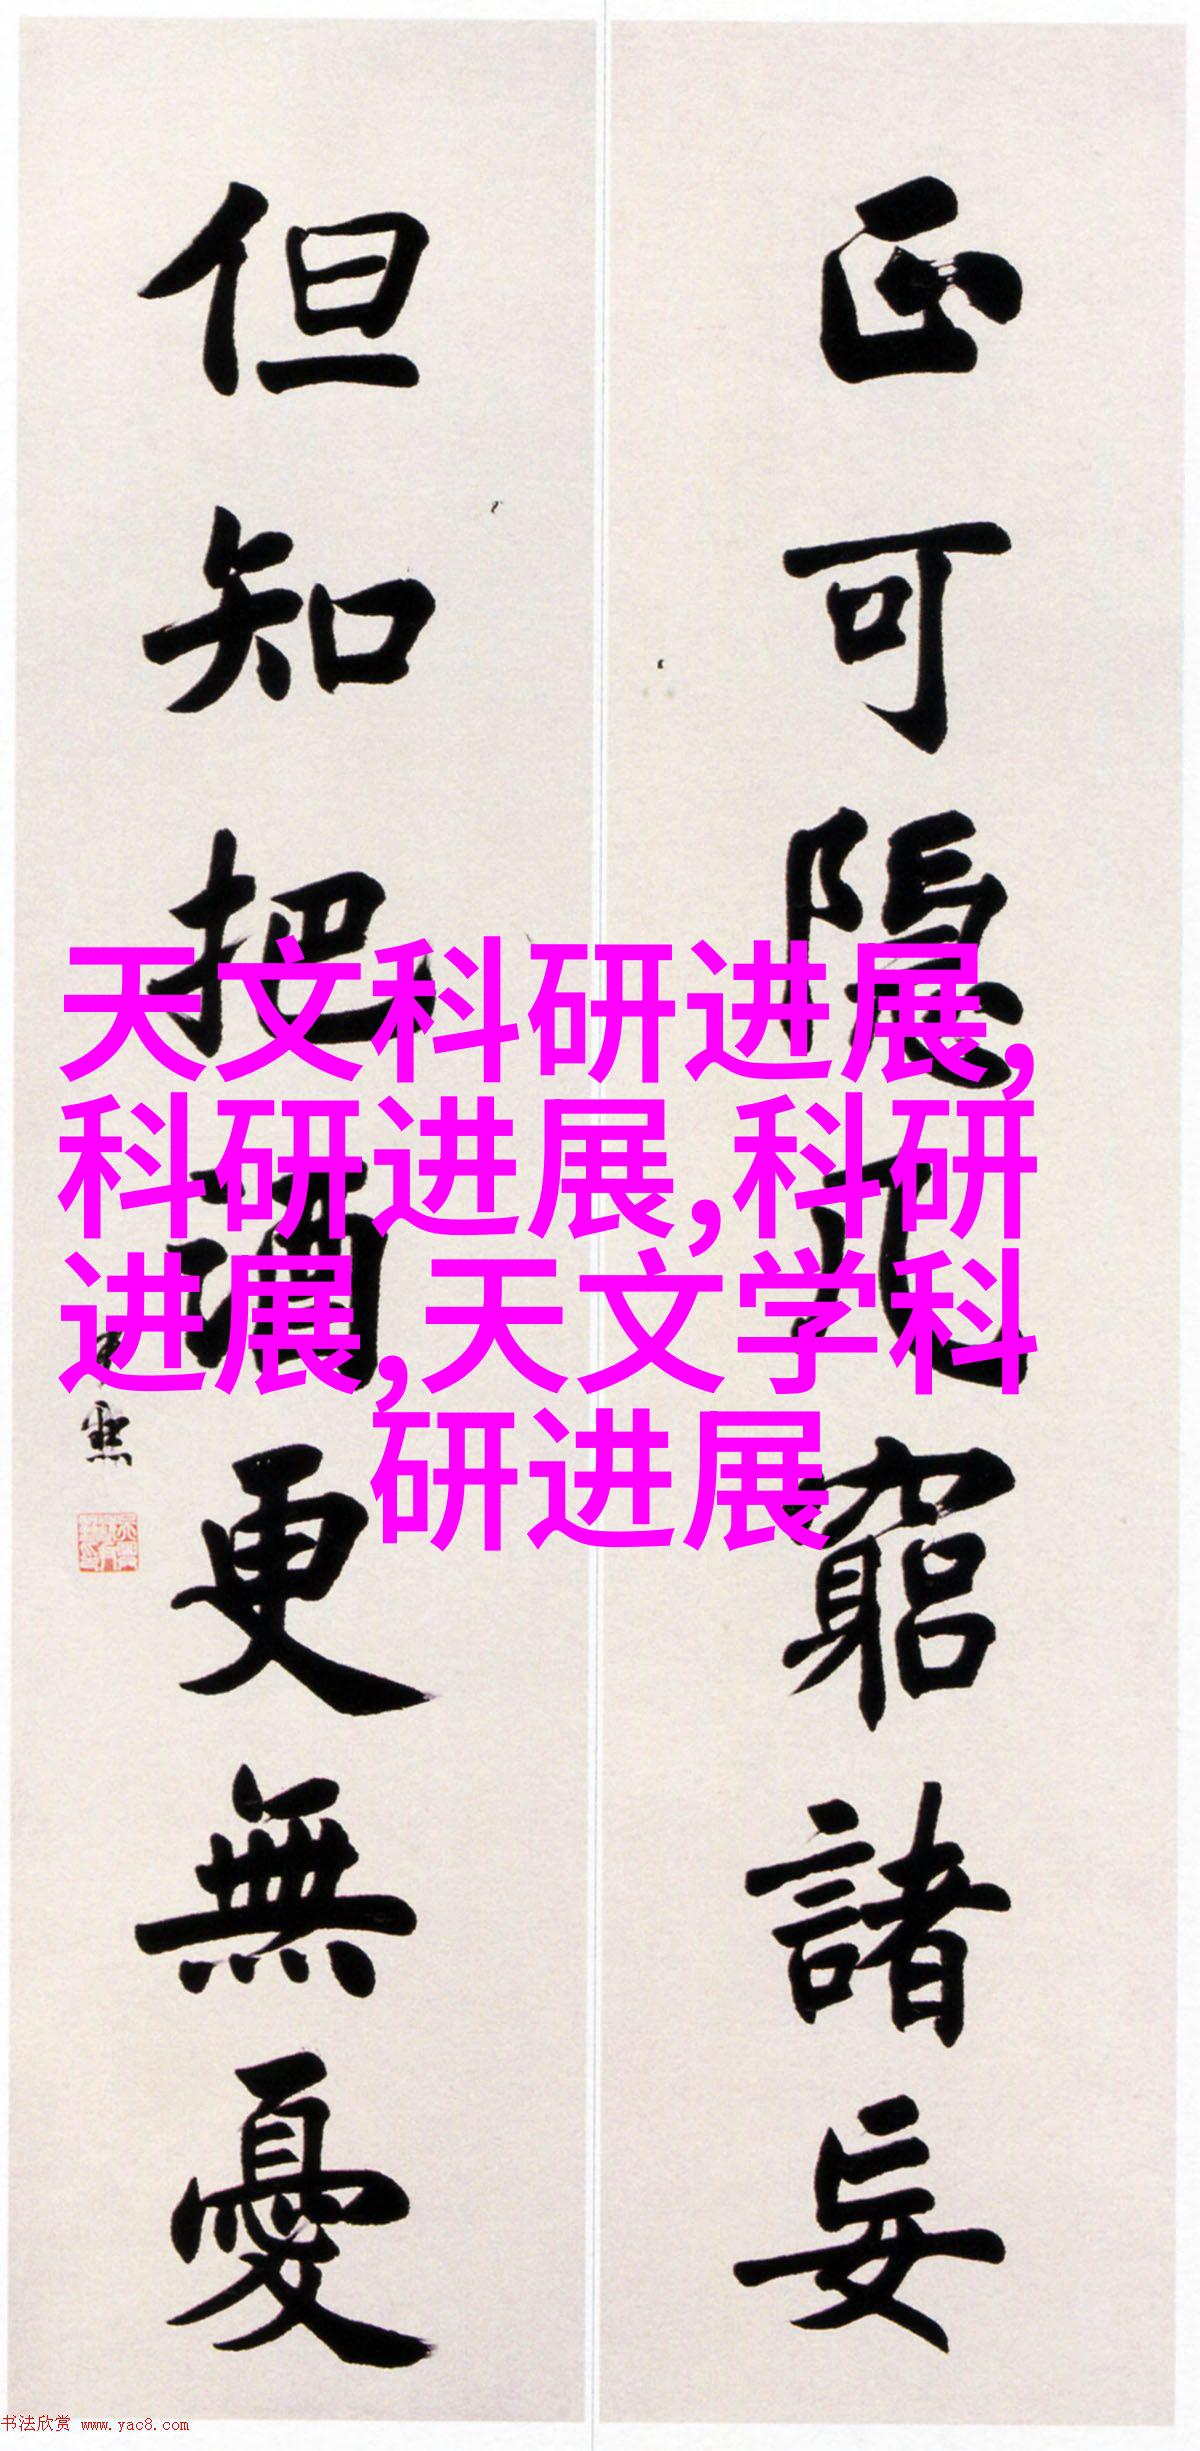 正可隱几竆諸妄
但知把酒更無憂
天文科研进展,
科研进展,科研
进展,天文学科
研进展
书法欣赏 www.yac8.com